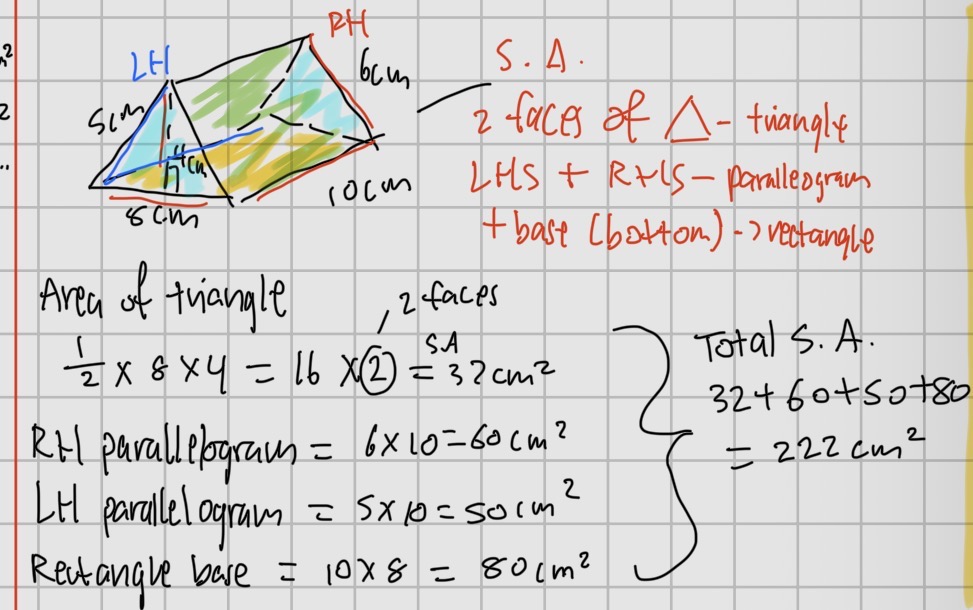 RH
LH
6cm
5cm
4cm
10cm
8cm
S.A.
2 faces of △ - triangle
LHS + RHS - paralleogram
+ base (bottom) -> rectangle
Area of triangle
2 faces
1/2 × 8 × 4 = 16 × 2 = 32cm²
SA
RH parallelogram = 6×10=60cm²
LH parallelogram = 5×10=50cm²
Rectangle base = 10×8 = 80cm²
Total S.A.
32+60+50+80
= 222cm²
m²
2
..